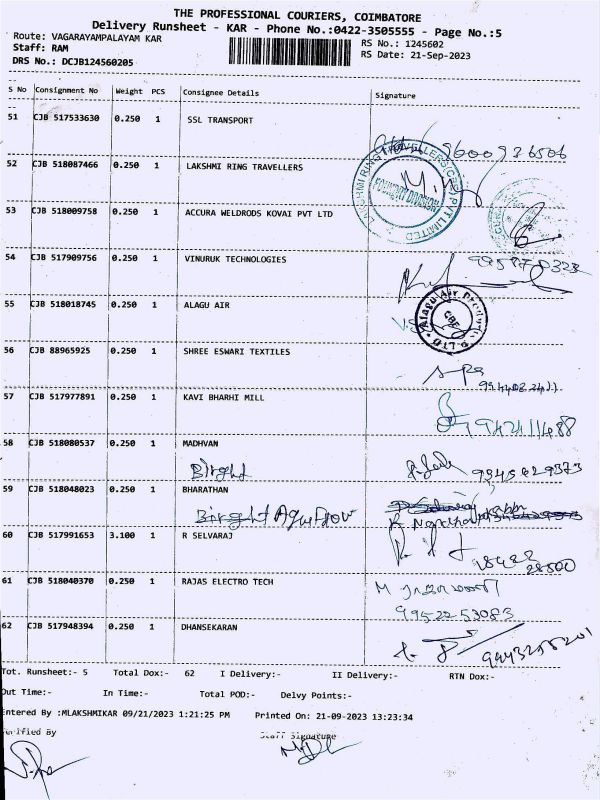 THE PROFESSIONAL COURIERS, COIMBATORE
Delivery Runsheet - KAR - Phone No.:0422-3505555 - Page No.:5
Route: VAGARAYAMPALAYAM KAR
RS No.: 1245602
Staff: RAM
RS Date: 21-Sep-2023
DRS No.: DCJB124560205
S No Consignment No Weight PCS Consignee Details Signature
51 CJB 517533630 0.250 1 SSL TRANSPORT
9600926506
52 CJB 518087466 0.250 1 LAKSHMI RING TRAVELLERS
53 CJB 518009758 0.250 1 ACCURA WELDRODS KOVAI PVT LTD
54 CJB 517909756 0.250 1 VINURUK TECHNOLOGIES
55 CJB 518018745 0.250 1 ALAGU AIR
56 CJB 88965925 0.250 1 SHREE ESWARI TEXTILES
57 CJB 517977891 0.250 1 KAVI BHARHI MILL
9842411488
58 CJB 518080537 0.250 1 MADHVAN
Biright
9345629373
59 CJB 518048023 0.250 1 BHARATHAN
60 CJB 517991653 3.100 1 R SELVARAJ
61 CJB 518040370 0.250 1 RAJAS ELECTRO TECH
9952253083
62 CJB 517948394 0.250 1 DHANSEKARAN
9443258201
Tot. Runsheet:- 5 Total Dox:- 62 I Delivery:- II Delivery:- RTN Dox:-
Out Time:- In Time:- Total POD:- Delvy Points:-
Entered By :MLAKSHMIKAR 09/21/2023 1:21:25 PM Printed On: 21-09-2023 13:23:34
Verified By Staff Signature